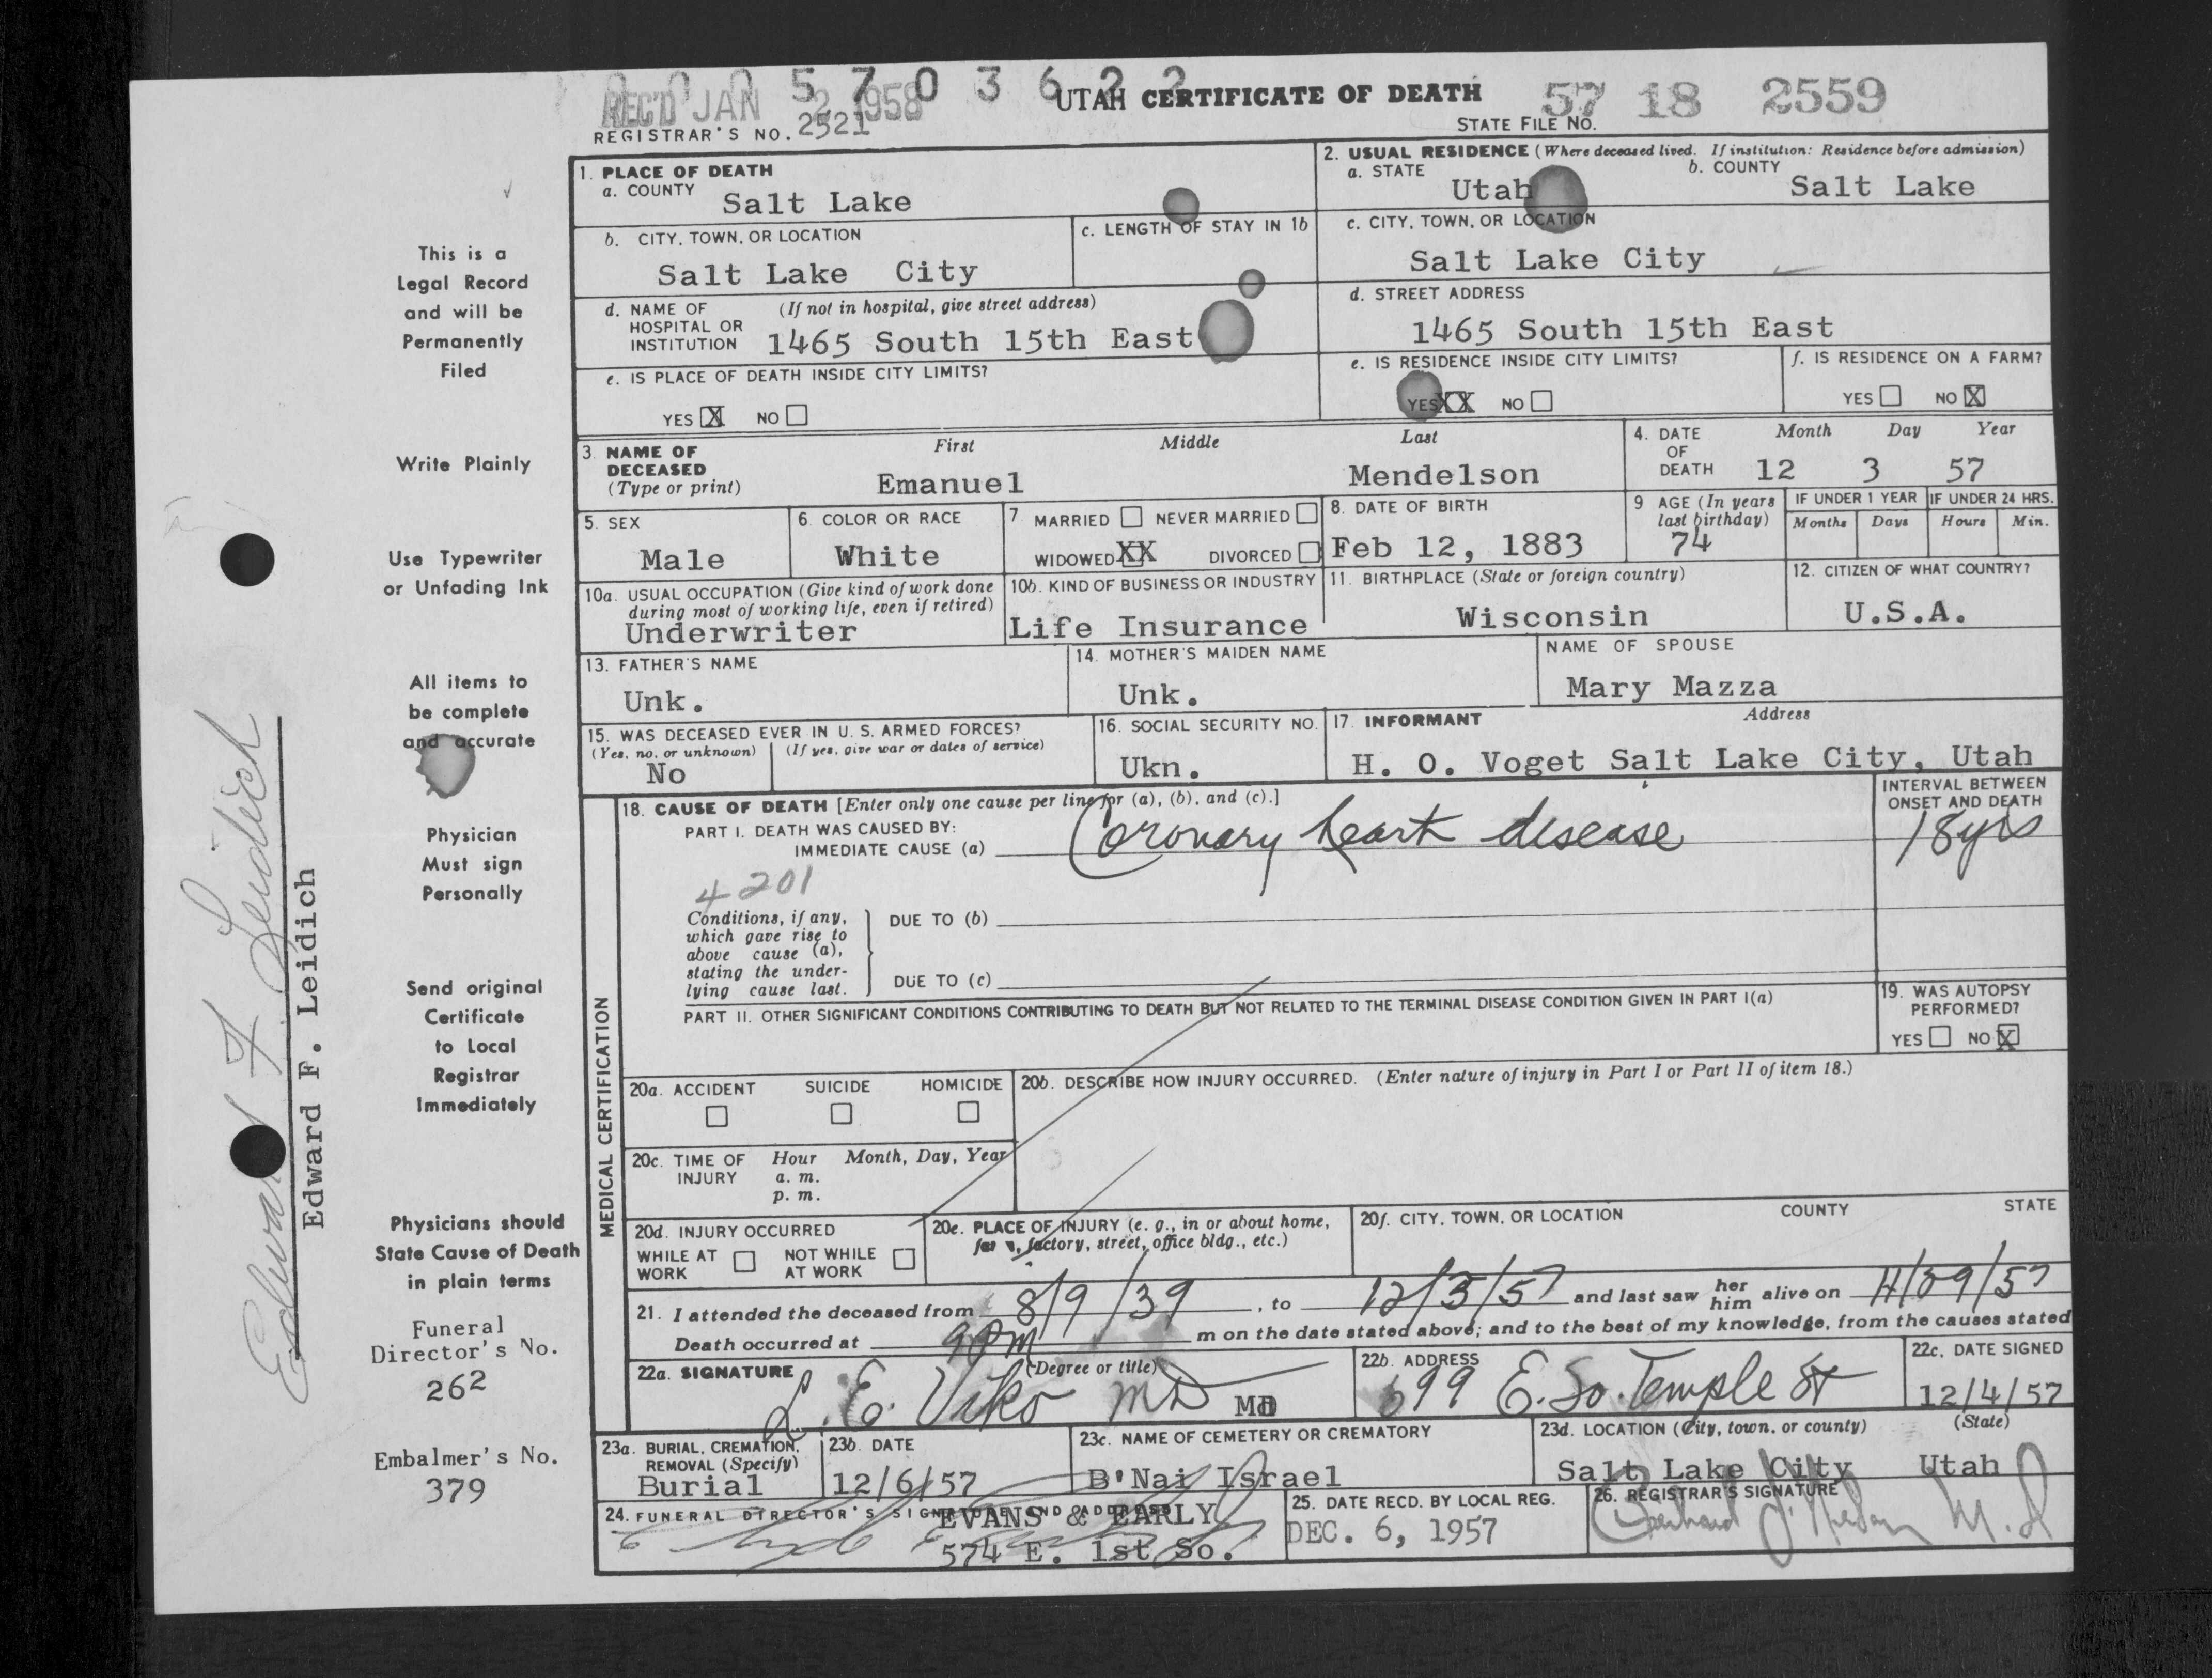 0 0 0 5 7 0 3 6 2 2
REC'D JAN 2 1958
UTAH CERTIFICATE OF DEATH
57 18 2559
REGISTRAR'S NO. 2521
STATE FILE NO.
1. PLACE OF DEATH
a. COUNTY
Salt Lake
2. USUAL RESIDENCE (Where deceased lived. If institution: Residence before admission)
a. STATE
Utah
b. COUNTY
Salt Lake
b. CITY, TOWN, OR LOCATION
Salt Lake City
c. LENGTH OF STAY IN 1b
c. CITY, TOWN, OR LOCATION
Salt Lake City
d. NAME OF (If not in hospital, give street address)
HOSPITAL OR
INSTITUTION 1465 South 15th East
d. STREET ADDRESS
1465 South 15th East
e. IS PLACE OF DEATH INSIDE CITY LIMITS?
YES X NO
e. IS RESIDENCE INSIDE CITY LIMITS?
YES XX NO
f. IS RESIDENCE ON A FARM?
YES NO X
3. NAME OF
DECEASED
(Type or print)
First Middle Last
Emanuel Mendelson
4. DATE
OF
DEATH
Month Day Year
12 3 57
5. SEX
Male
6. COLOR OR RACE
White
7 MARRIED NEVER MARRIED
WIDOWED XX DIVORCED
8. DATE OF BIRTH
Feb 12, 1883
9 AGE (In years
last birthday)
74
IF UNDER 1 YEAR
Months Days
IF UNDER 24 HRS.
Hours Min.
10a. USUAL OCCUPATION (Give kind of work done
during most of working life, even if retired)
Underwriter
10b. KIND OF BUSINESS OR INDUSTRY
Life Insurance
11. BIRTHPLACE (State or foreign country)
Wisconsin
12. CITIZEN OF WHAT COUNTRY?
U.S.A.
13. FATHER'S NAME
Unk.
14. MOTHER'S MAIDEN NAME
Unk.
NAME OF SPOUSE
Mary Mazza
15. WAS DECEASED EVER IN U. S. ARMED FORCES?
(Yes, no, or unknown) (If yes, give war or dates of service)
No
16. SOCIAL SECURITY NO.
Ukn.
17. INFORMANT Address
H. O. Voget Salt Lake City, Utah
MEDICAL CERTIFICATION
18. CAUSE OF DEATH [Enter only one cause per line for (a), (b), and (c).]
PART I. DEATH WAS CAUSED BY:
IMMEDIATE CAUSE (a) Coronary heart disease
INTERVAL BETWEEN
ONSET AND DEATH
18 yrs
4201
Conditions, if any,
which gave rise to
above cause (a),
stating the under-
lying cause last.
DUE TO (b)
DUE TO (c)
PART II. OTHER SIGNIFICANT CONDITIONS CONTRIBUTING TO DEATH BUT NOT RELATED TO THE TERMINAL DISEASE CONDITION GIVEN IN PART I(a)
19. WAS AUTOPSY
PERFORMED?
YES NO X
20a. ACCIDENT SUICIDE HOMICIDE
20b. DESCRIBE HOW INJURY OCCURRED. (Enter nature of injury in Part I or Part II of item 18.)
20c. TIME OF Hour Month, Day, Year
INJURY a. m.
p. m.
20d. INJURY OCCURRED
WHILE AT NOT WHILE
WORK AT WORK
20e. PLACE OF INJURY (e. g., in or about home,
factory, street, office bldg., etc.)
20f. CITY, TOWN, OR LOCATION COUNTY STATE
21. I attended the deceased from 8/9/39, to 12/3/57 and last saw her him alive on 4/29/57
Death occurred at 9 PM m on the date stated above; and to the best of my knowledge, from the causes stated
22a. SIGNATURE (Degree or title)
L. E. Viko MD MD
22b. ADDRESS
699 E. So. Temple St
22c. DATE SIGNED
12/4/57
23a. BURIAL, CREMATION,
REMOVAL (Specify)
Burial
23b. DATE
12/6/57
23c. NAME OF CEMETERY OR CREMATORY
B'Nai Israel
23d. LOCATION (City, town, or county) (State)
Salt Lake City Utah
24. FUNERAL DIRECTOR'S SIGNATURE AND ADDRESS
EVANS & EARLY
574 E. 1st So.
25. DATE RECD. BY LOCAL REG.
DEC. 6, 1957
26. REGISTRAR'S SIGNATURE
M.D
This is a
Legal Record
and will be
Permanently
Filed
Write Plainly
Use Typewriter
or Unfading Ink
All items to
be complete
and accurate
Physician
Must sign
Personally
Send original
Certificate
to Local
Registrar
Immediately
Physicians should
State Cause of Death
in plain terms
Funeral
Director's No.
262
Embalmer's No.
379
Edward F Leidich
Edward F. Leidich